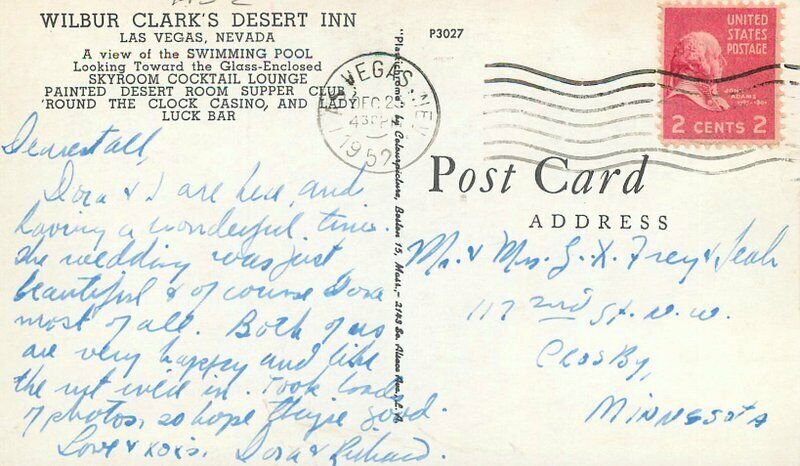 WILBUR CLARK'S DESERT INN
LAS VEGAS, NEVADA
A view of the SWIMMING POOL
Looking Toward the Glass-Enclosed
SKYROOM COCKTAIL LOUNGE
PAINTED DESERT ROOM SUPPER CLUB
'ROUND THE CLOCK CASINO, AND LADY
LUCK BAR
Dearest all,
Dora & I are here, and
having a wonderful time.
The wedding was just
beautiful & of course Dora
most of all. Both of us
are very happy and like
the in. Took loads
of photos, so hope they're good.
Love & xoxs. Dora & Richard.
"Plastichrome" by Colourpicture, Boston 15, Mass.,
P3027
VEGAS, NEV.
DEC 2
1952
UNITED
STATES
POSTAGE
JOHN
ADAMS
2 CENTS 2
Post Card
ADDRESS
Mr. & Mrs. Frey & Leah
117 2nd St. N.W.
Crosby,
Minnesota